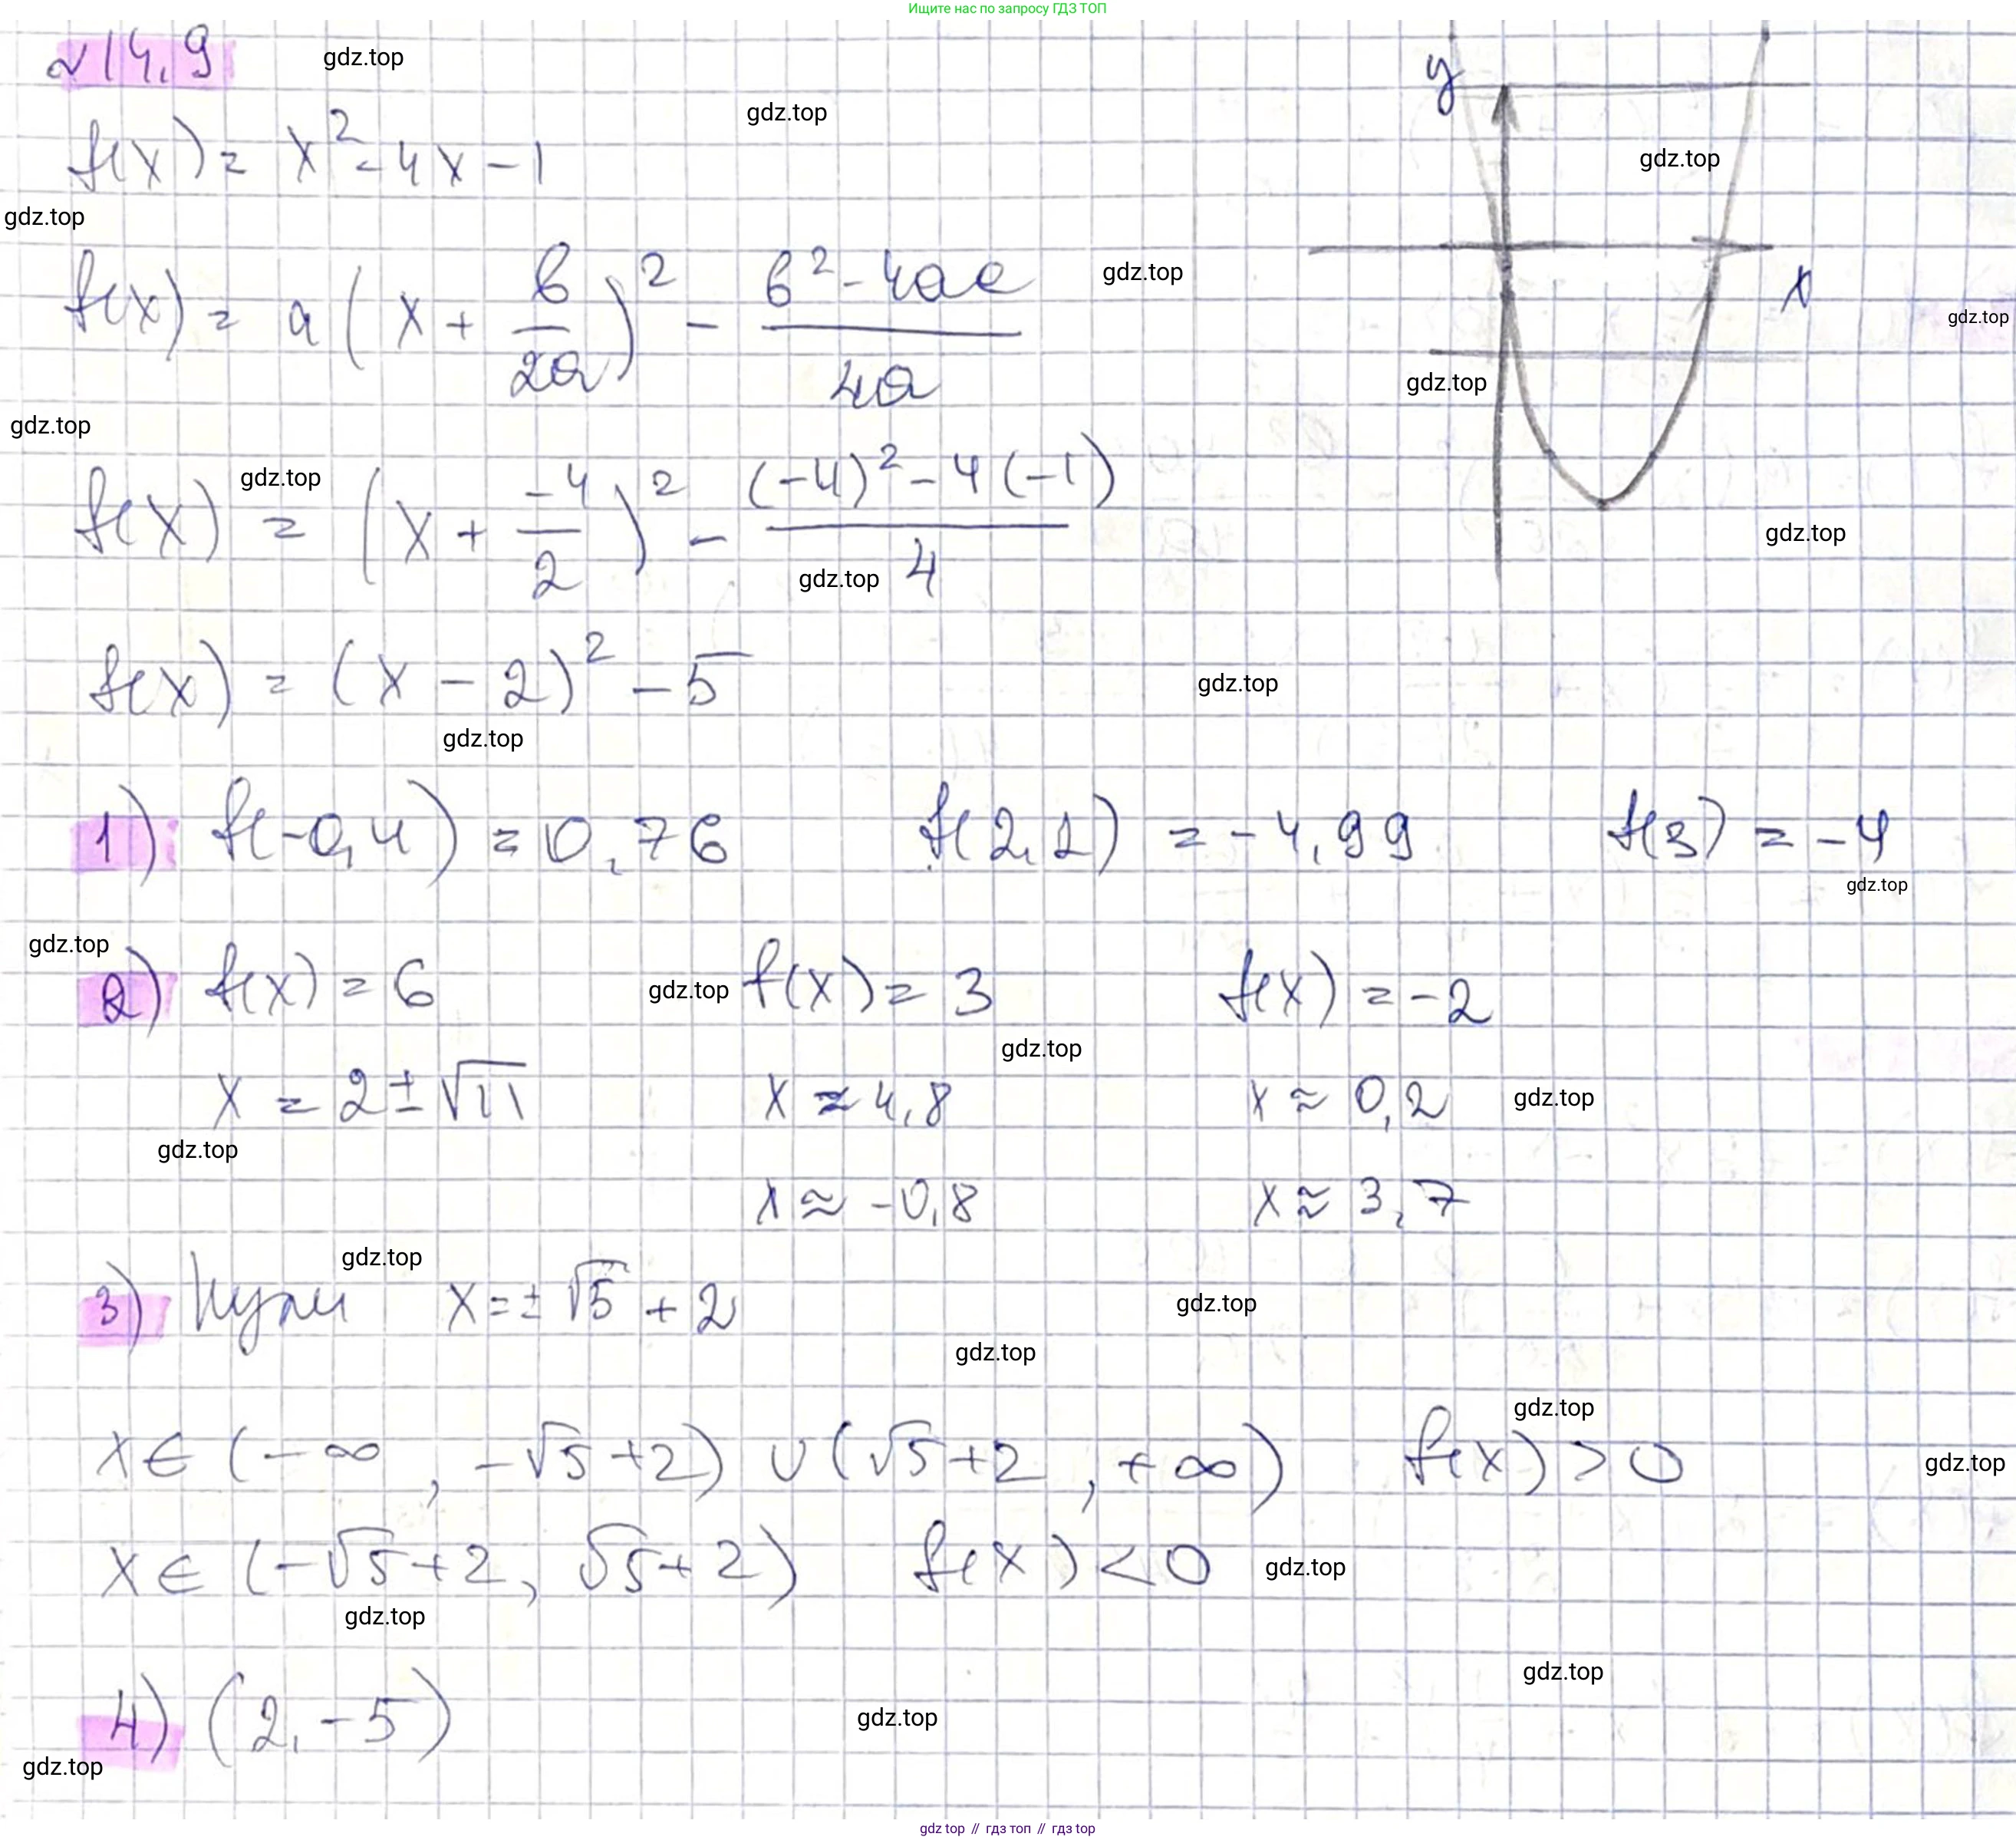 Ищите нас по запросу ГДЗ ТОП
№14,9
gdz.top
gdz.top
y
f(x) = x² - 4x - 1
gdz.top
gdz.top
f(x) = a(x + b/2a)² - (b² - 4ac)/4a
gdz.top
x
gdz.top
gdz.top
gdz.top
gdz.top
f(x) = (x + -4/2)² - ((-4)² - 4(-1))/4
gdz.top
gdz.top
f(x) = (x - 2)² - 5
gdz.top
gdz.top
1) f(-0,4) = 0,76 f(2,1) = -4,99 f(3) = -4
gdz.top
gdz.top
2) f(x) = 6 gdz.top f(x) = 3 f(x) = -2
gdz.top
x = 2 ± √11 x ≈ 4,8 x ≈ 0,2 gdz.top
gdz.top
x ≈ -0,8 x ≈ 3,7
gdz.top
3) Нули x = ± √5 + 2 gdz.top
gdz.top
gdz.top
x ∈ (-∞, -√5+2) ∪ (√5+2, +∞) f(x) > 0 gdz.top
x ∈ (-√5+2, √5+2) f(x) < 0 gdz.top
gdz.top
gdz.top
4) (2, -5) gdz.top
gdz.top
gdz top // гдз топ // гдз top